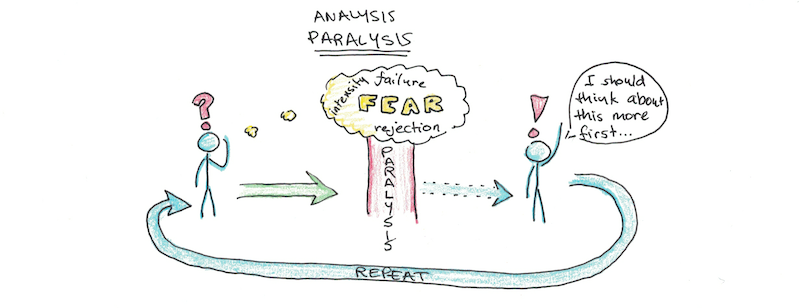 ANALYSIS
PARALYSIS
?
intensity
failure
FEAR
rejection
PARALYSIS
!
I should
think about
this more
first...
REPEAT